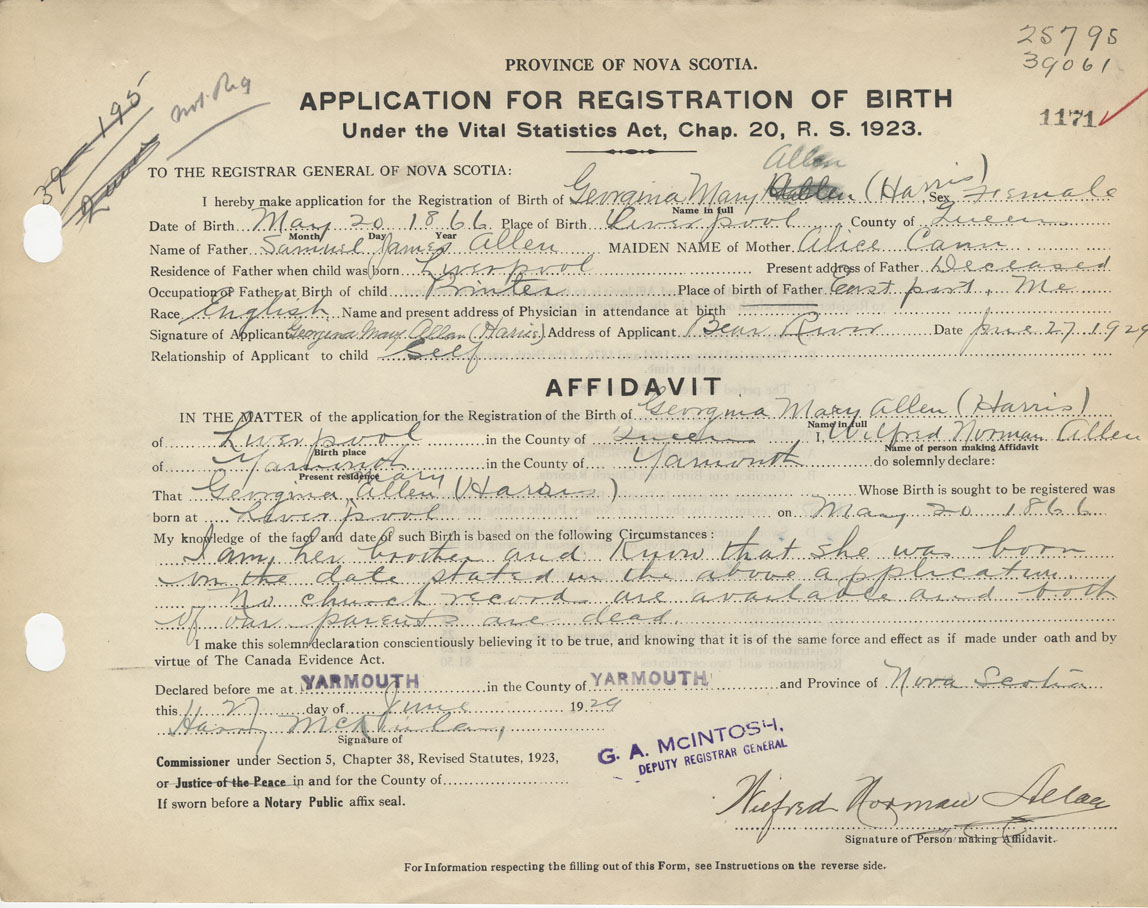 25795
39061
PROVINCE OF NOVA SCOTIA.
39-195
not Reg
APPLICATION FOR REGISTRATION OF BIRTH
1171
Under the Vital Statistics Act, Chap. 20, R. S. 1923.
TO THE REGISTRAR GENERAL OF NOVA SCOTIA:
Allen
I hereby make application for the Registration of Birth of Georgina Mary (Harris) Sex Female
Name in full
Date of Birth May 20 1866 Place of Birth Liverpool County of Queens
Month Day Year
Name of Father Samuel James Allen MAIDEN NAME of Mother Alice Cann
Residence of Father when child was born Liverpool Present address of Father Deceased
Occupation of Father at Birth of child Printer Place of birth of Father East port. Me
Race English Name and present address of Physician in attendance at birth
Signature of Applicant Georgina Mary Allan (Harris) Address of Applicant Bear River Date June 27, 1929
Relationship of Applicant to child Self
AFFIDAVIT
IN THE MATTER of the application for the Registration of the Birth of Georgina Mary Allen (Harris)
Name in full
of Liverpool in the County of Queens I, Wilfred Norman Allen
Birth place Name of person making Affidavit
of Yarmouth in the County of Yarmouth do solemnly declare:
Present residence
Mary
That Georgina Allen (Harris) Whose Birth is sought to be registered was
born at Liverpool on May 20 1866
My knowledge of the fact and date of such Birth is based on the following Circumstances:
I am her brother and know that she was born
on the date stated in the above application.
No church records are available and both
of our parents are dead.
I make this solemn declaration conscientiously believing it to be true, and knowing that it is of the same force and effect as if made under oath and by
virtue of The Canada Evidence Act.
Declared before me at YARMOUTH in the County of YARMOUTH and Province of Nova Scotia
this 27 day of June 1929
Harry McKinlay
Signature of
G. A. MCINTOSH,
DEPUTY REGISTRAR GENERAL
Commissioner under Section 5, Chapter 38, Revised Statutes, 1923,
or Justice of the Peace in and for the County of
If sworn before a Notary Public affix seal.
Wilfred Norman Allen
Signature of Person making Affidavit.
For Information respecting the filling out of this Form, see Instructions on the reverse side.